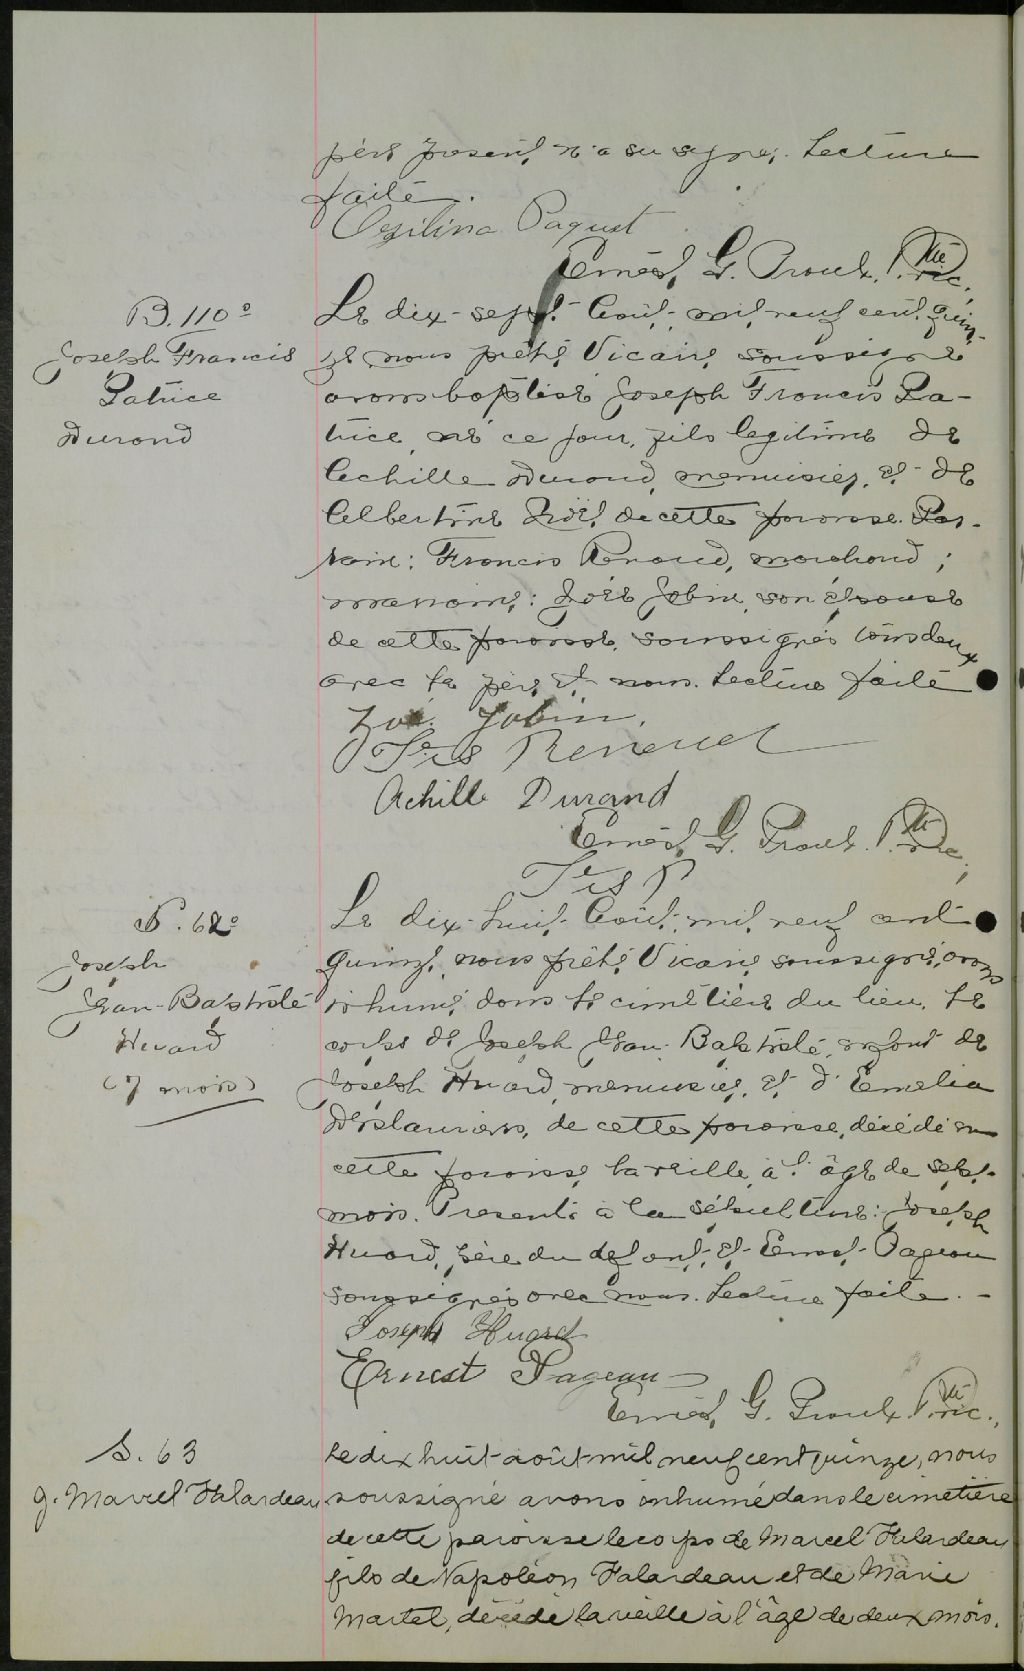 père présent, n'a su signer. Lecture
faite.
Ozilina Paquet
Ernest G. Proulx, Ptre vic.,
B. 110°
Joseph Francis
Patrice
Durand
Le dix-sept Août, mil neuf cent quin-
ze nous prêtre Vicaire, soussigné
avons baptisé Joseph Francis Pa-
trice, né ce jour, fils légitime de
Achille Durand, menuisier, et de
Albertine de cette paroisse. Par-
rain: Francis Renaud, marchand;
marraine: Zoé Jobin, son épouse
de cette paroisse, soussignés tous deux
avec le père et nous. Lecture faite
Zoé Jobin.
Frs Renaud
Achille Durand
Ernest G. Proulx. Ptre vic.,
Frs P
S. 62°
Joseph
Jean-Baptiste
Huard
(7 mois)
Le dix-huit Août, mil neuf cent
quinze, nous prêtre Vicaire, soussigné, avons
inhumé dans le cimetière du lieu, le
corps de Joseph Jean-Baptiste, enfant de
Joseph Huard, menuisier, et d'Emélia
Deslauriers, de cette paroisse, décédé en
cette paroisse, la veille, à l'âge de sept
mois. Présents à la sépulture: Joseph
Huard, père du défunt, et Ernest Pageau
soussignés avec nous. Lecture faite. -
Joseph Huard
Ernest Pageau
Ernest G. Proulx Ptre vic.,
S. 63
J. Marcel Falardeau
Le dix huit août mil neuf cent quinze, nous
soussigné avons inhumé dans le cimetière
de cette paroisse le corps de Marcel Falardeau
fils de Napoléon Falardeau et de Marie
Martel, décédé la veille à l'âge de deux mois.